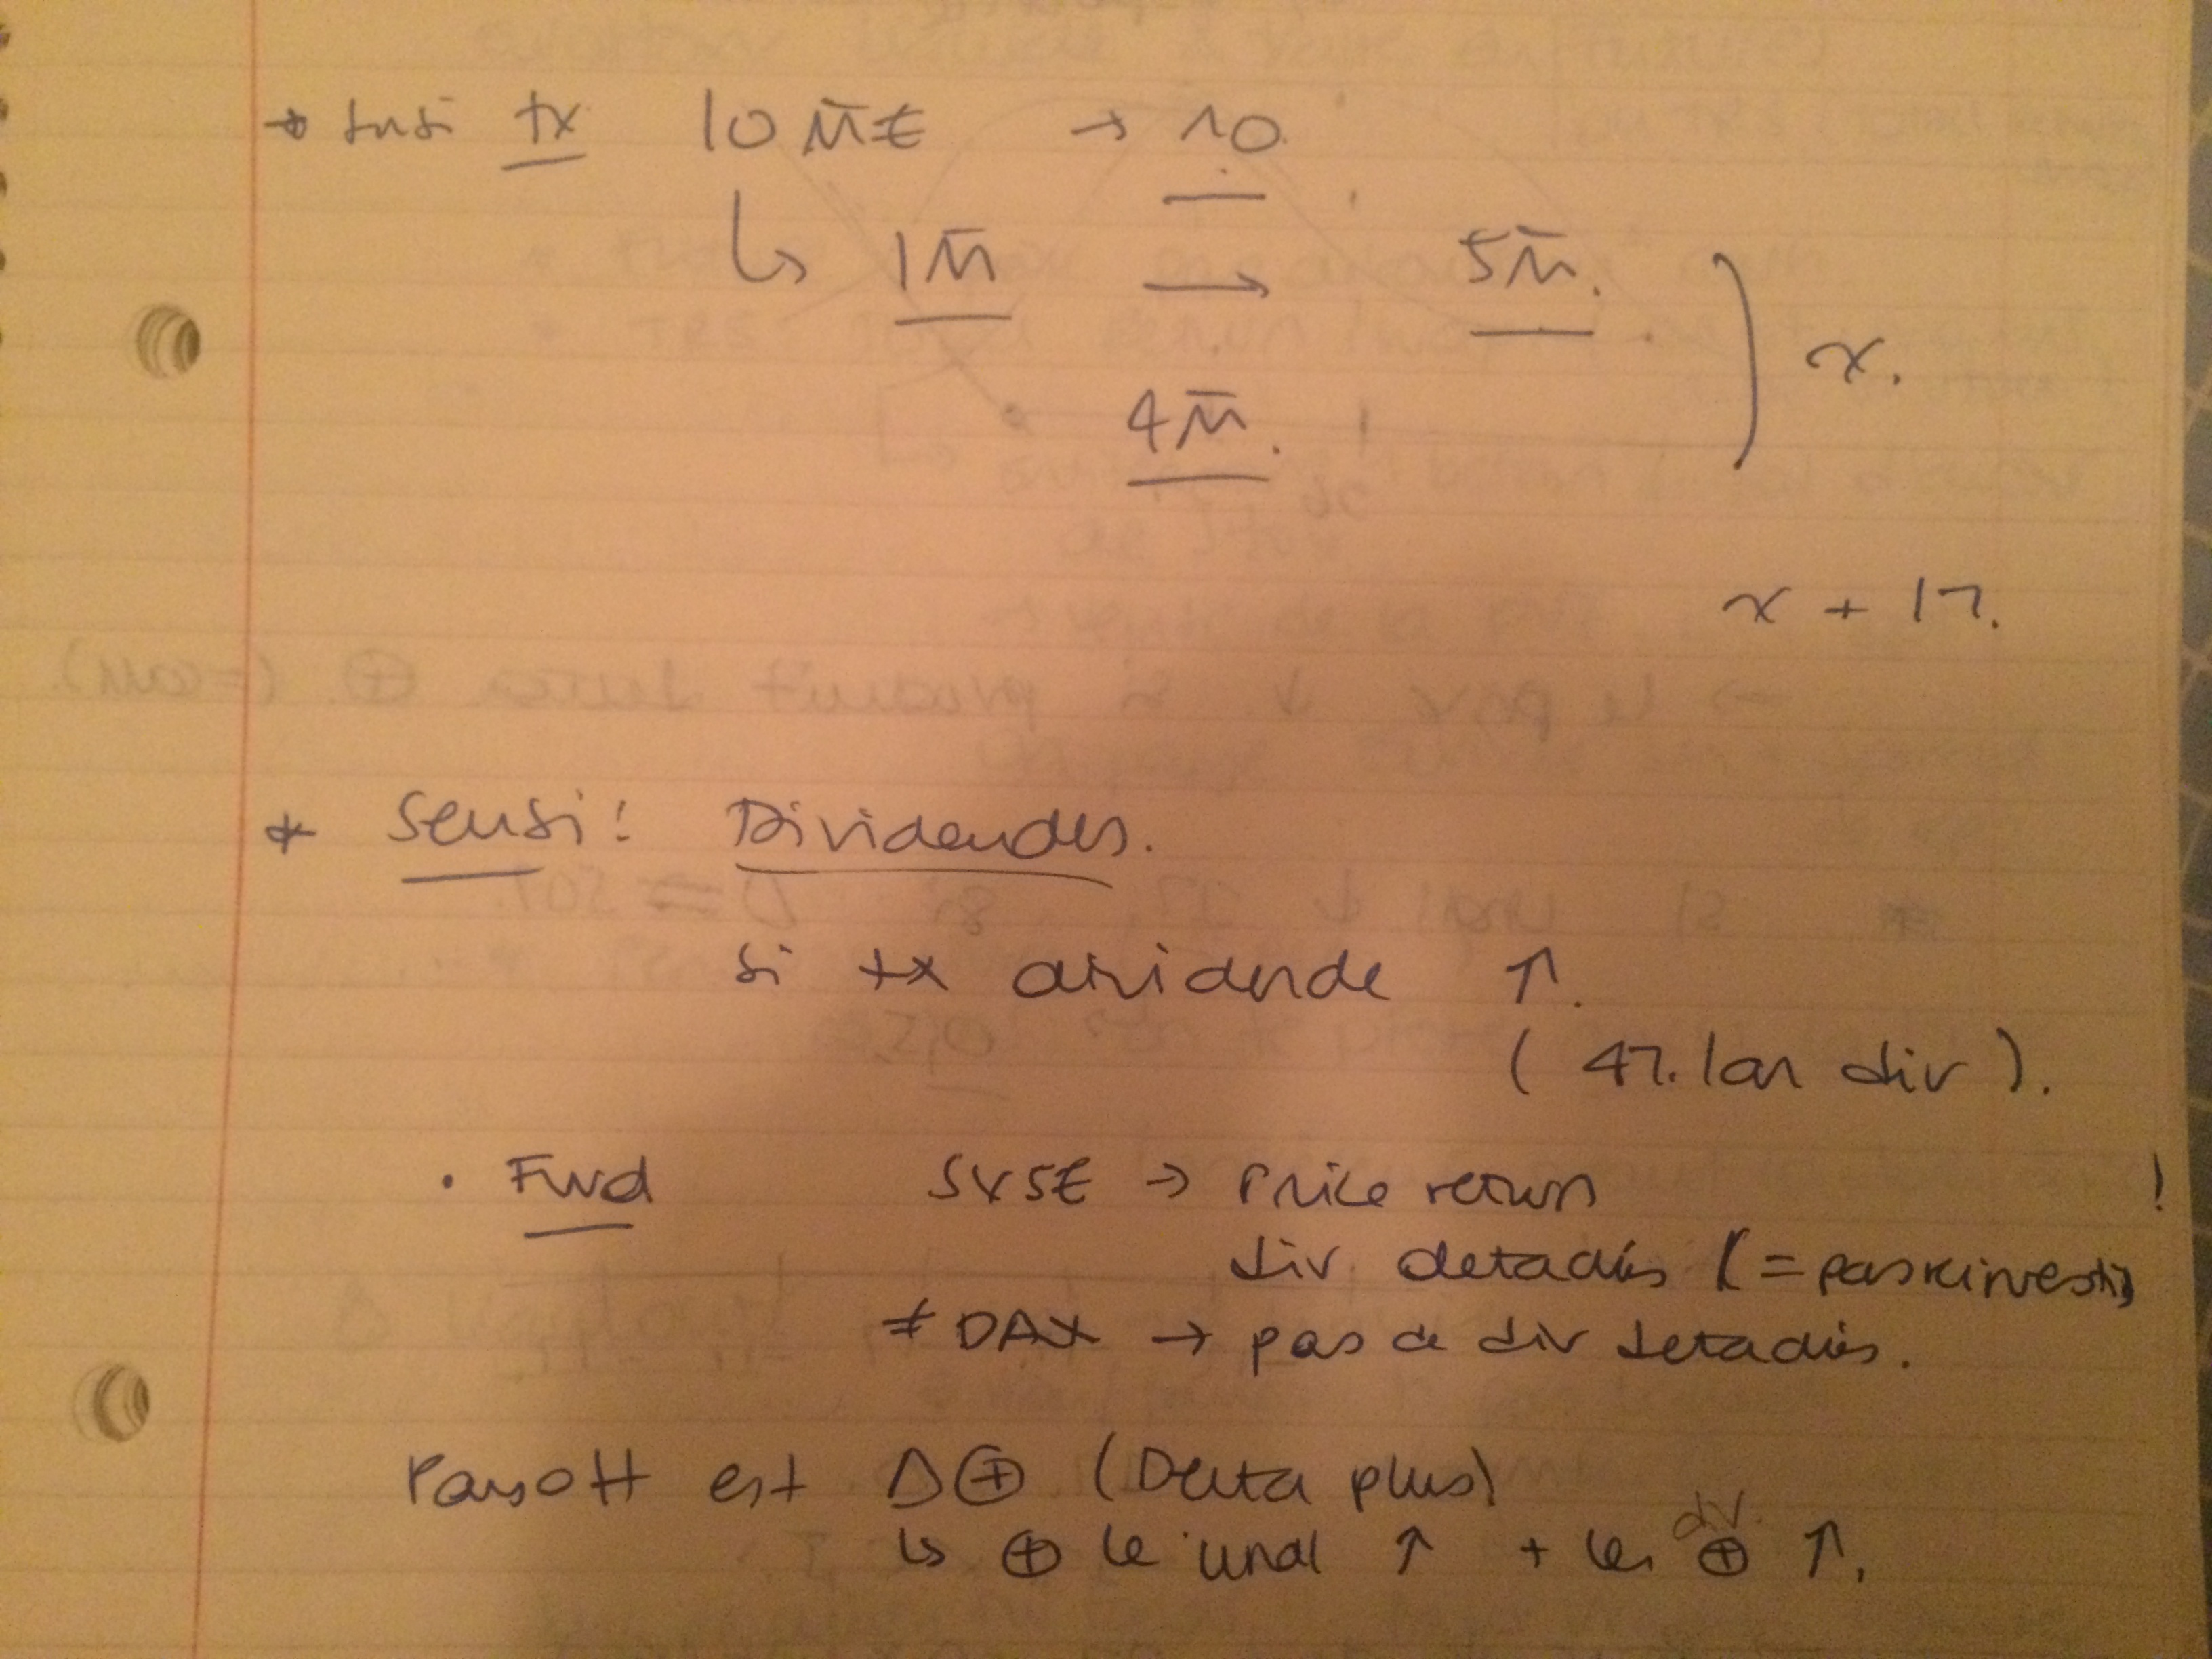 → sensi tx 10 M€ → 10.
↳ 1M → 5M.
4M. ) x.
x + 1%.
* Sensi: Dividendes.
si tx dividende ↑.
(4%. lan div).
• Fwd SX5E → Price return !
div detachés (= pas reinvestis)
≠ DAX → pas de div detachés.
Payoff est Δ⊕ (Delta plus)
div.
↳ ⊕ le undl ↑ + le ⊕ ↑.